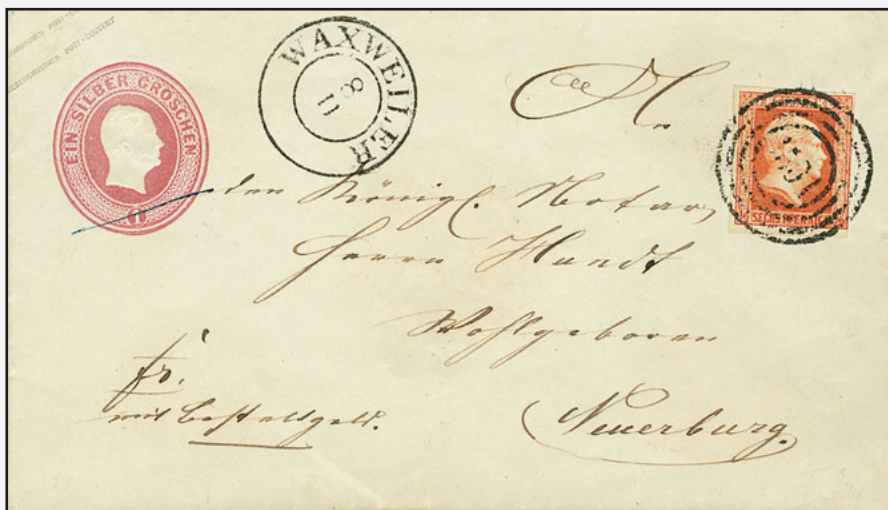 POST-COUVERT
EIN SILBER GROSCHEN
1
WAXWEILER
8
11
SECHS PFENNIG
den Königl. Notar
Herrn Handt
Wohlgeboren
fr.
mit Bestellgeld.
Neuerburg.